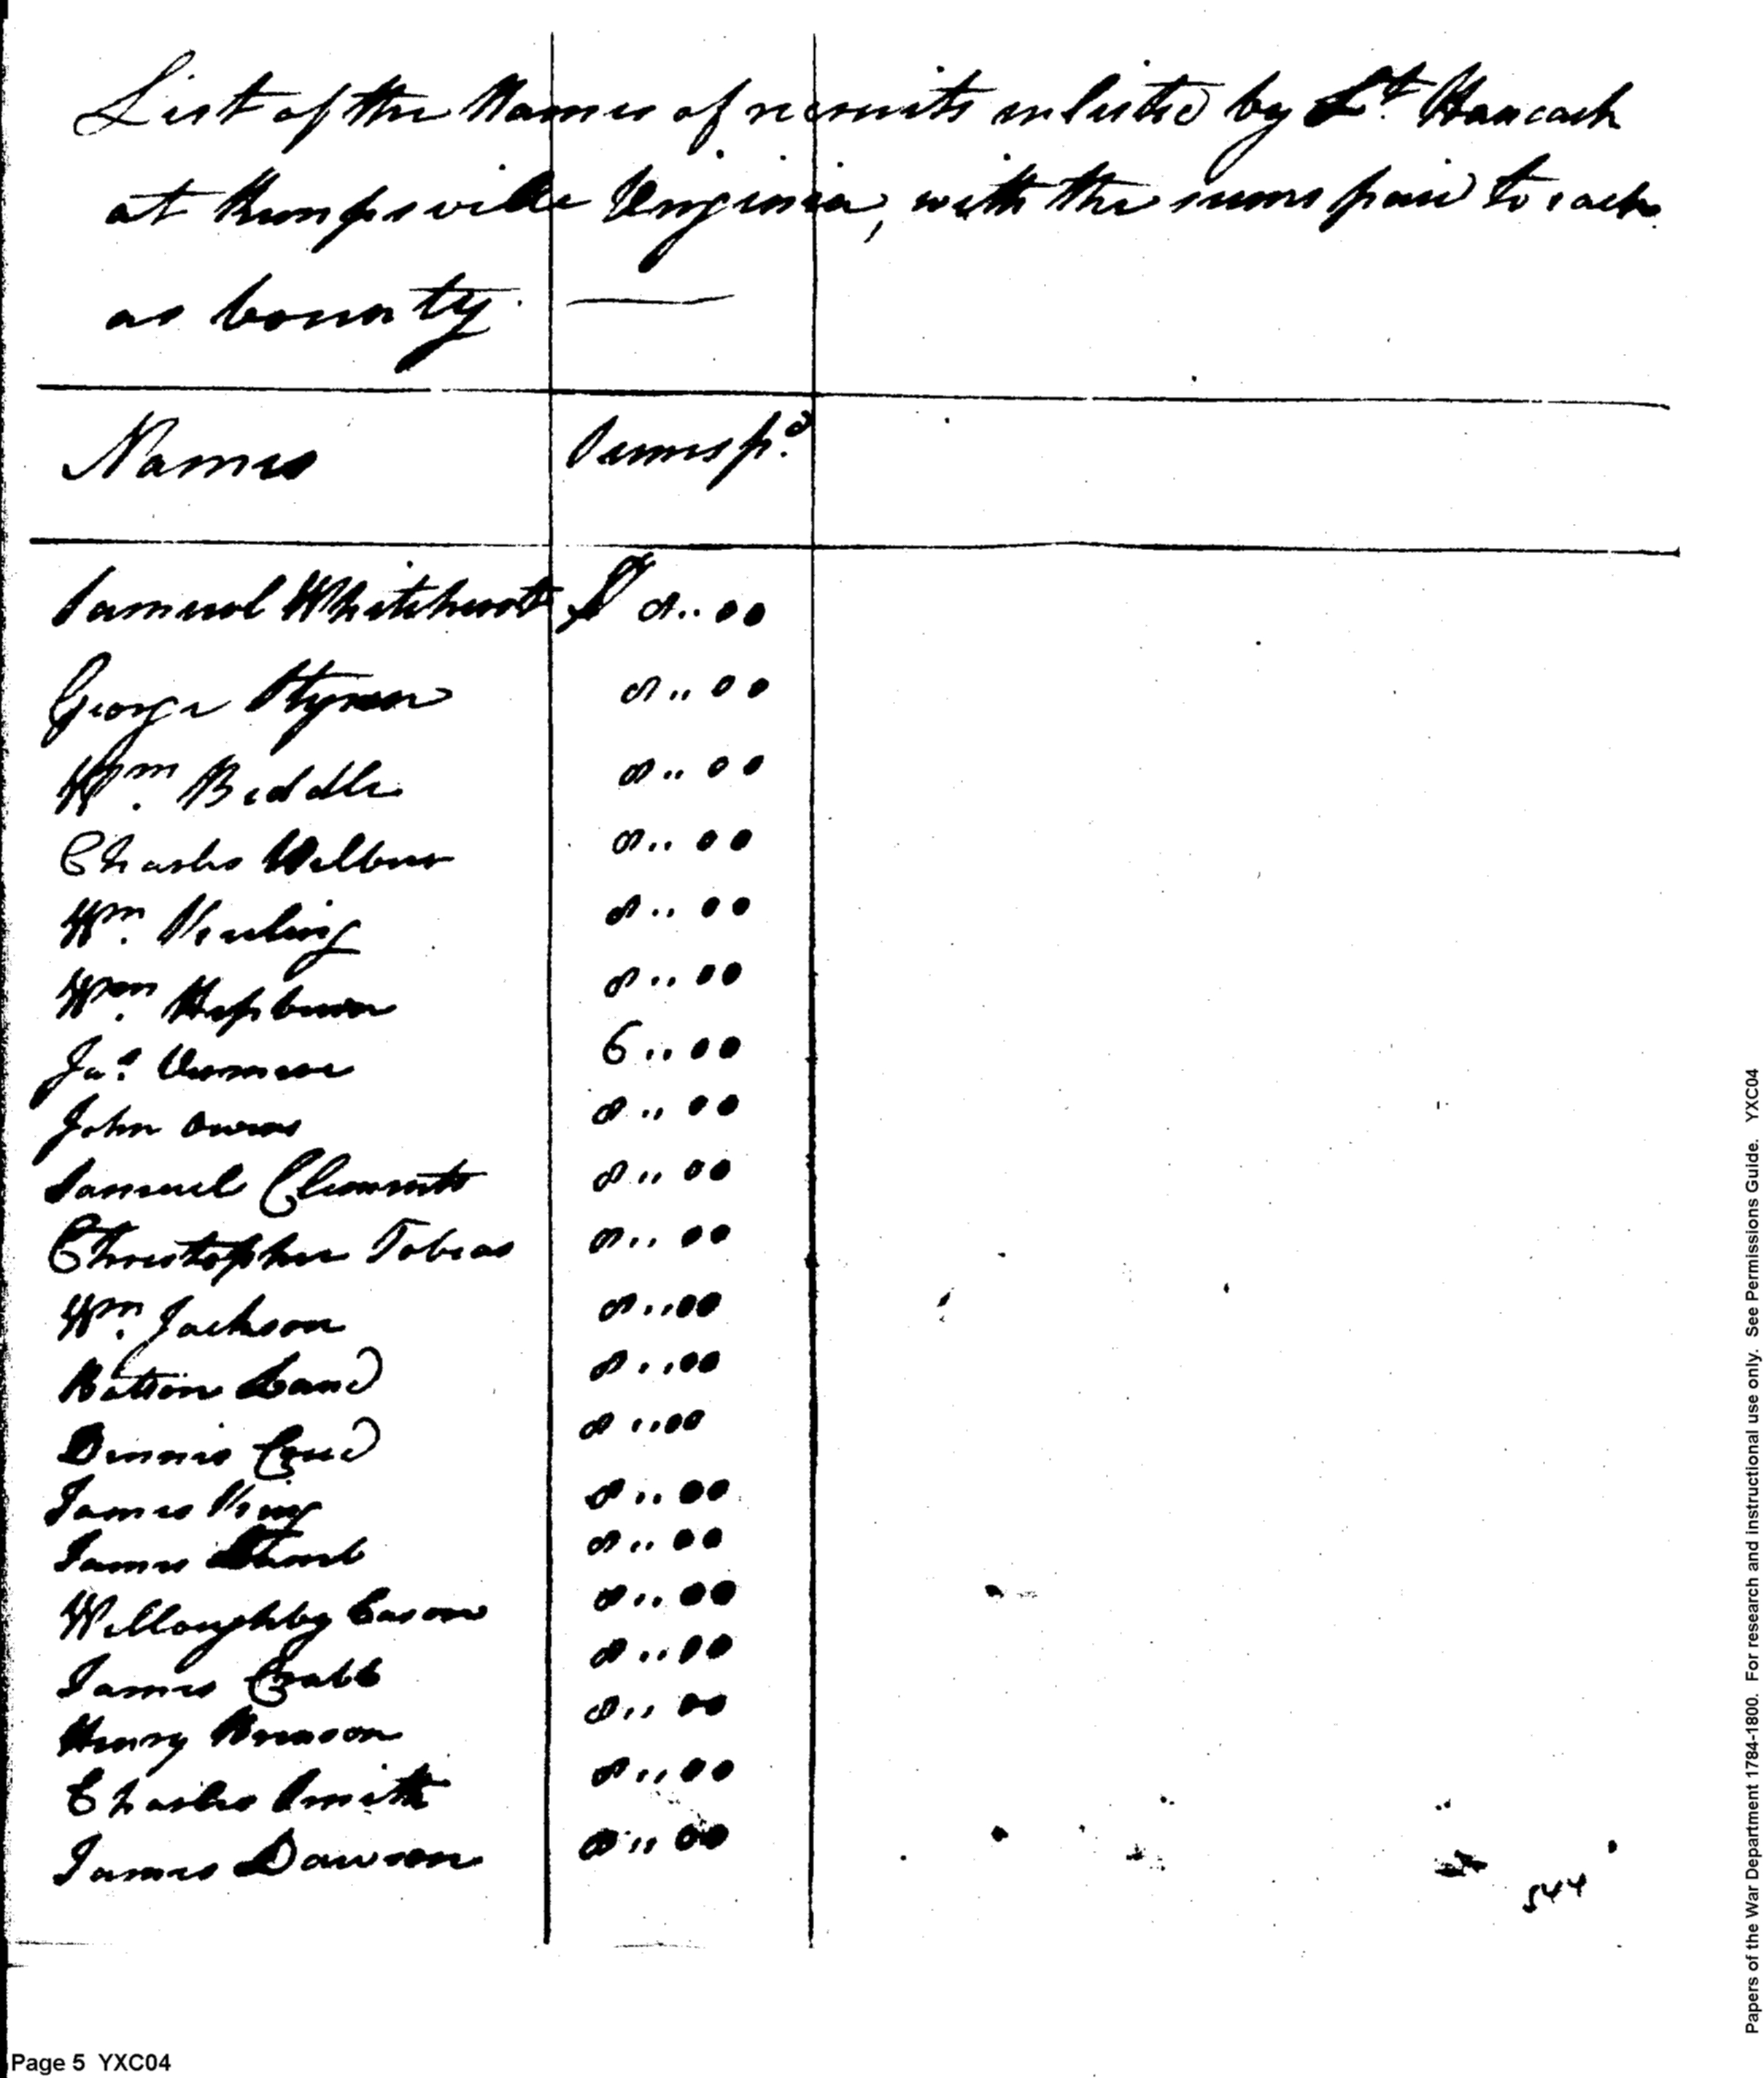 List of the Names of recruits enlisted by Lt. Hancock
at Kempsville Virginia, with the sums paid to each
as bounty.
Names Sums pd.
Samuel Whitehurst $ 8..00
George 8..00
Wm. Biddle 8..00
Charles Wilbur 8..00
Wm. 8..00
Wm. Hepburn 8..00
Jas. 6..00
John Owens 8..00
Samuel Clements 8..00
Christopher Tobias 8..00
Wm. Jackson 8..00
Batson Land 8..00
Dennis 8..00
James King 8..00
James 8..00
Willoughby Cason 8..00
James Crabb 8..00
Henry Brinson 8..00
Charles Smith 8..00
James Dawson 8..00
544
Page 5 YXC04
Papers of the War Department 1784-1800. For research and instructional use only. See Permissions Guide. YXC04